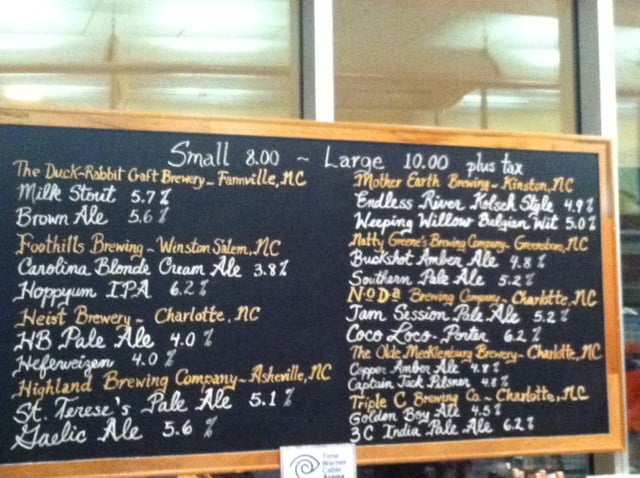 Small 8.00 ~ Large 10.00 plus tax
The Duck-Rabbit Craft Brewery ~ Farmville, NC
Milk Stout 5.7 %
Brown Ale 5.6 %
Foothills Brewing ~ Winston Salem, NC
Carolina Blonde Cream Ale 3.8 %
Hoppyum IPA 6.2 %
Heist Brewery ~ Charlotte, NC
HB Pale Ale 4.0 %
Hefeweizen 4.0 %
Highland Brewing Company ~ Asheville, NC
St. Terese's Pale Ale 5.1 %
Gaelic Ale 5.6 %
Mother Earth Brewing ~ Kinston, NC
Endless River Kolsch Style 4.9 %
Weeping Willow Belgian Wit 5.0 %
Natty Greene's Brewing Company ~ Greensboro, NC
Buckshot Amber Ale 4.8 %
Southern Pale Ale 5.2 %
NoDa Brewing Company ~ Charlotte, NC
Jam Session Pale Ale 5.2 %
Coco Loco Porter 6.2 %
The Olde Mecklenburg Brewery ~ Charlotte, NC
Copper Amber Ale 4.8 %
Captain Jack Pilsner 4.8 %
Triple C Brewing Co ~ Charlotte, NC
Golden Boy Ale 4.5 %
3C India Pale Ale 6.2 %
Time
Warner
Cable
Arena